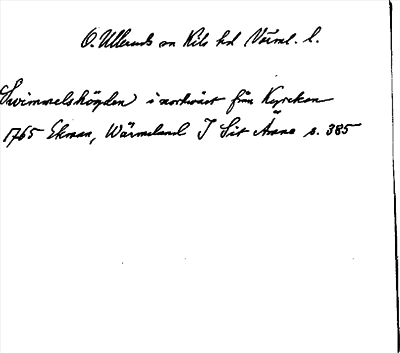 Ö. Ullerud sn Kils hd Värml. l.
Swimmelshögden i nordwäst från Kyrckan
1765 Ekman, Wärmeland I Sit Ämne s. 385